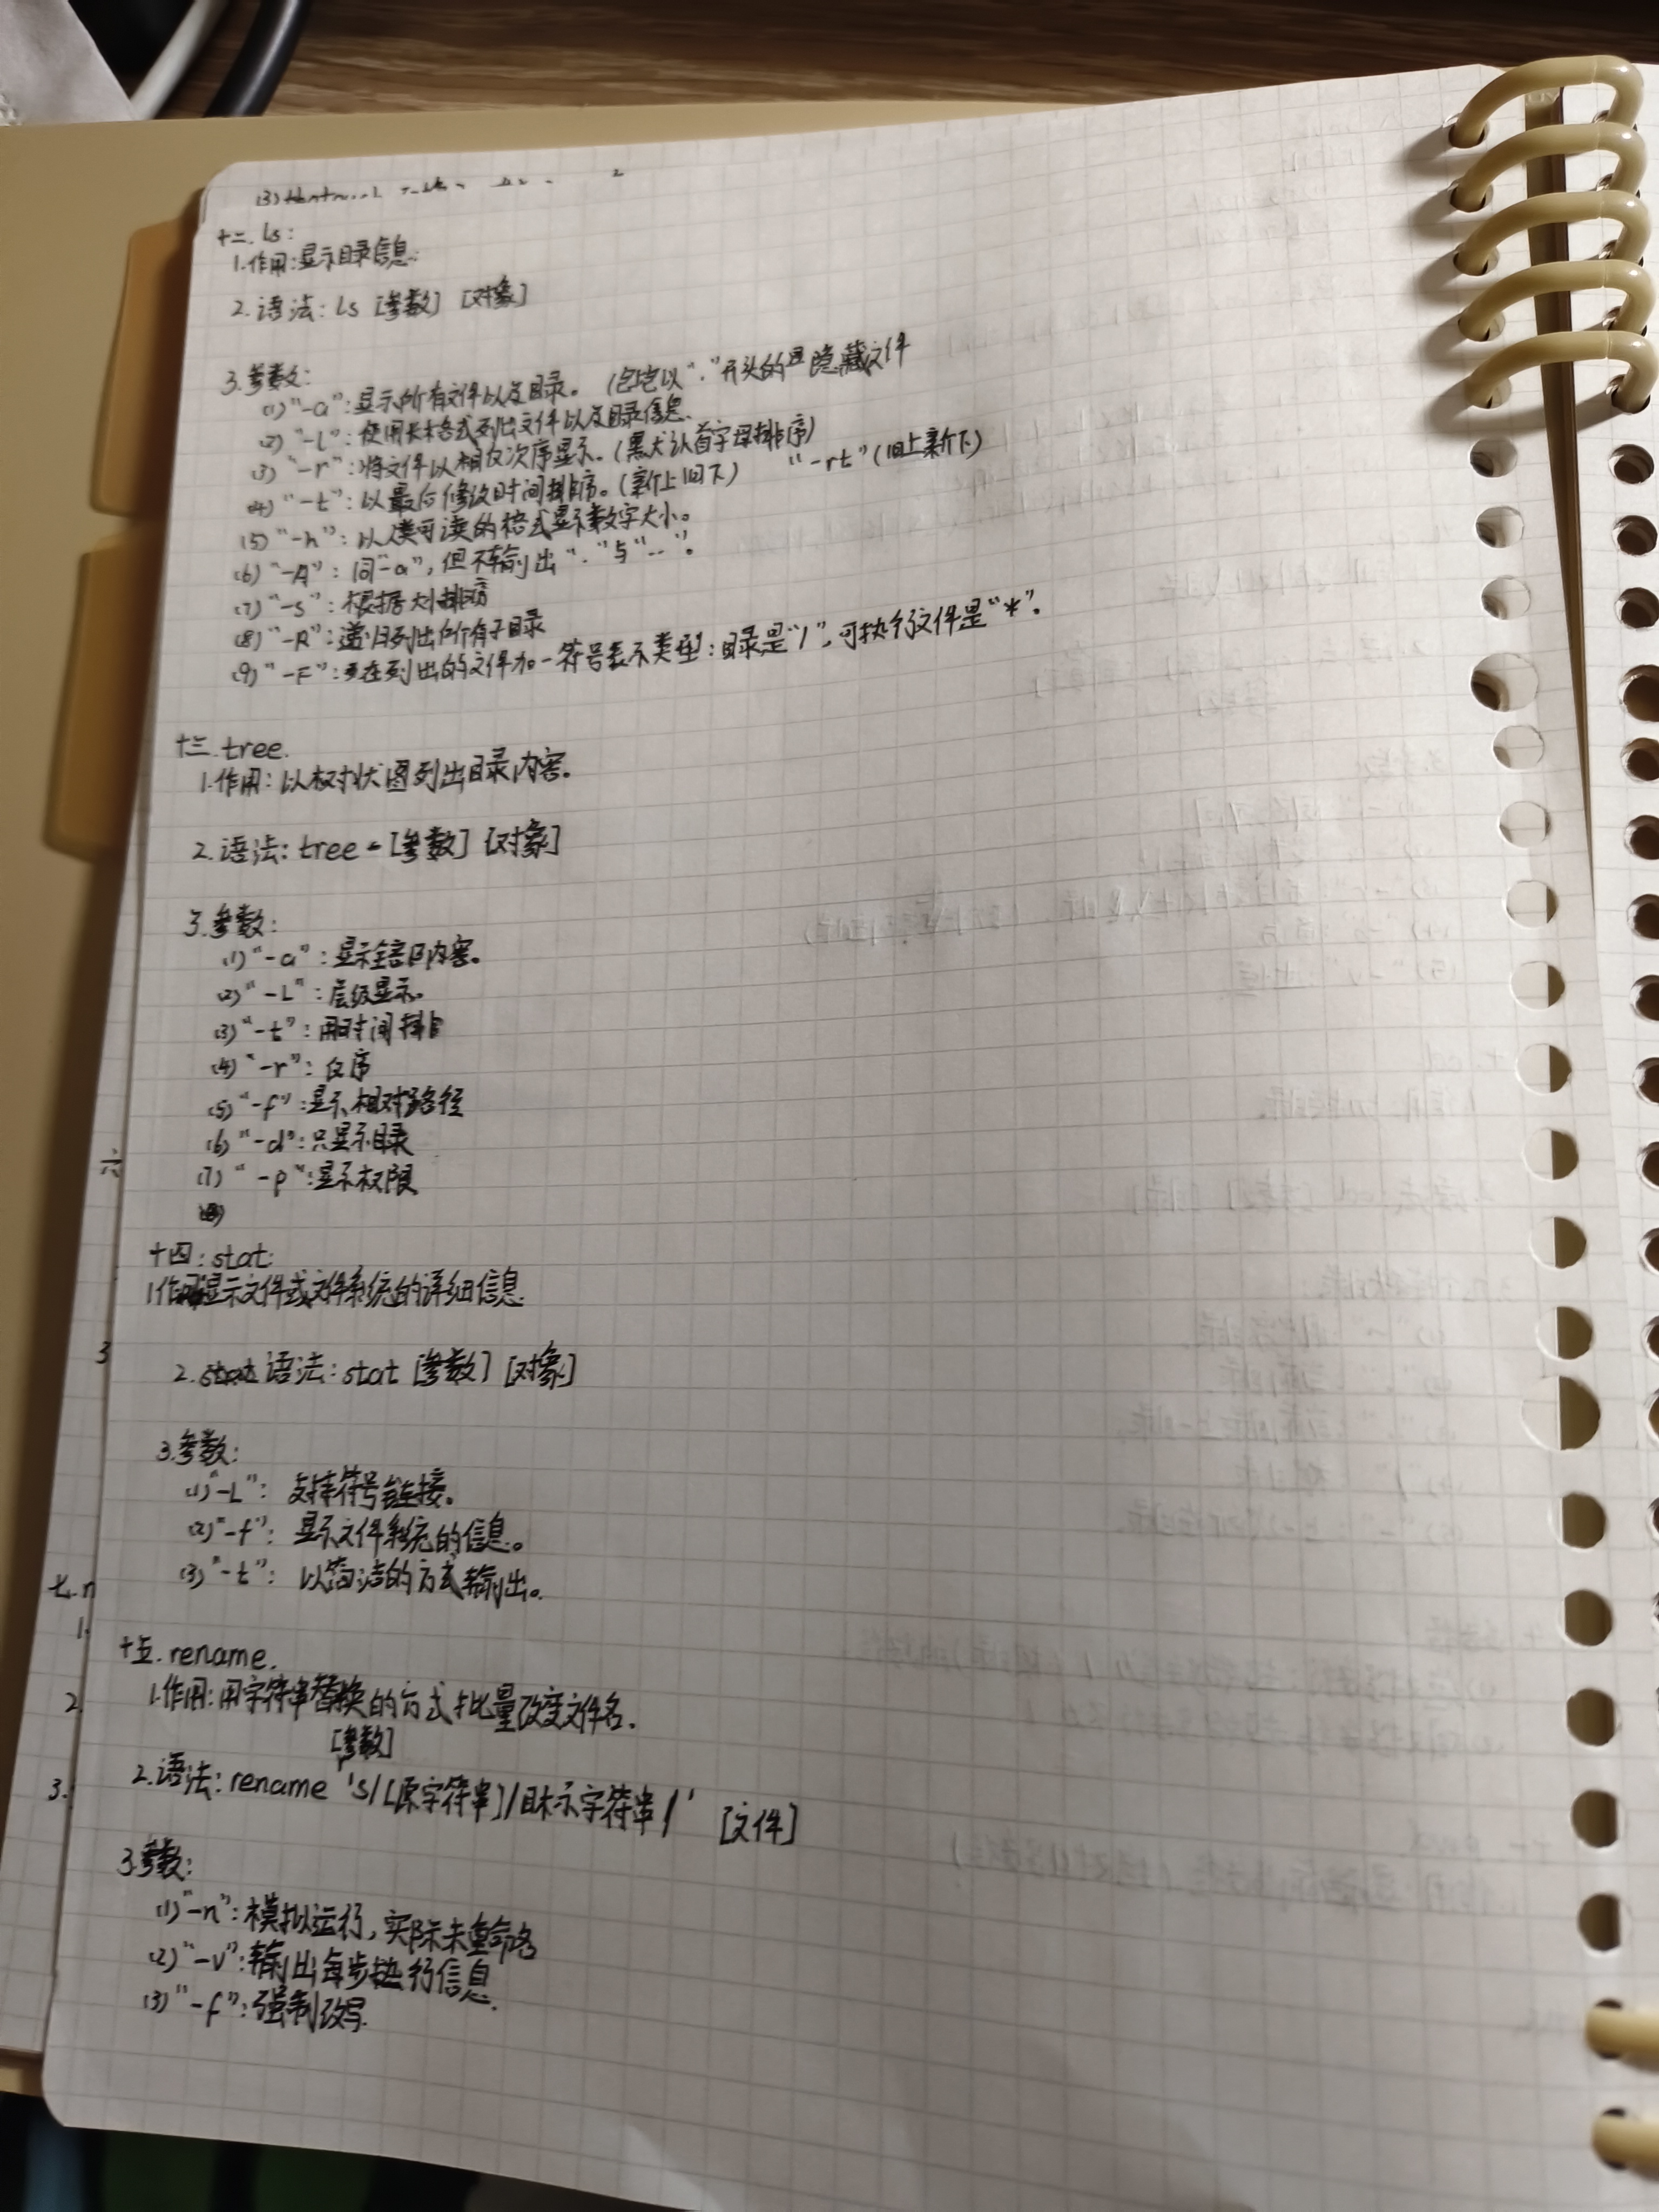 十二. ls:
1.作用:显示目录信息.
2.语法: ls [参数] [对象]
3.参数:
(1)"-a":显示所有文件以及目录。(包括以"."开头的隐藏文件
(2)"-l":使用长格式列出文件以及目录信息.
(3)"-r":将文件以相反次序显示。(默认首字母排序)
(4)"-t":以最后修改时间排序。(新上旧下) "-rt"(旧上新下)
(5)"-h":以人类可读的格式显示数字大小。
(6)"-A":同"-a",但不输出"."与".."。
(7)"-s":根据大小排序
(8)"-R":递归列出所有子目录
(9)"-F":在列出的文件加一符号表示类型:目录是"/",可执行文件是"*"。
十三.tree.
1.作用:以树状图列出目录内容。
2.语法: tree - [参数] [对象]
3.参数:
(1)"-a":显示全部内容。
(2)"-L":层级显示。
(3)"-t":用时间排
(4)"-r":反序
(5)"-f":显示相对路径
(6)"-d":只显示目录
(7)"-p":显示权限
(8)
十四:stat:
1作用显示文件或文件系统的详细信息.
2.语法: stat [参数] [对象]
3.参数:
(1)"-L": 支持符号链接。
(2)"-f": 显示文件系统的信息。
(3)"-t": 以简洁的方式输出。
十五. rename.
1.作用:用字符串替换的方式批量改变文件名.
[参数]
2.语法: rename 's/[原字符串]/目标字符串/' [文件]
3.参数:
(1)"-n":模拟运行,实际未重命名
(2)"-v":输出每步执行信息.
(3)"-f":强制改写.
六
3
七.n
1.
2
3.